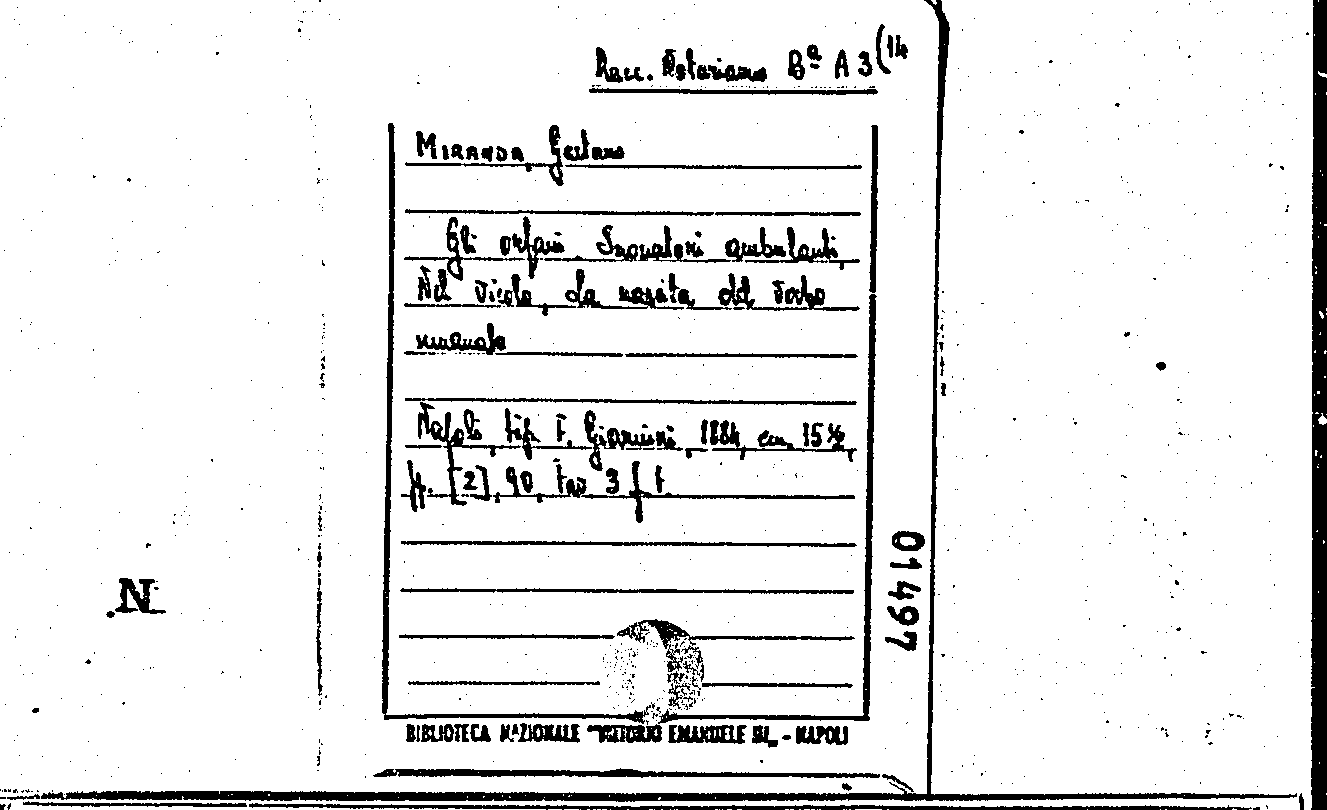 Racc. Notariano Bª A 3 (14
MIRANDA, Gaetano
Gli orfani. Suonatori ambulanti,
Nel Vicolo, La nascita del Verbo
umanato
Napoli, tip. F. Giannini, 1884, cm. 15½,
pp. [2], 90, tav 3 f t.
014497
N
BIBLIOTECA NAZIONALE "VITTORIO EMANUELE III" - NAPOLI